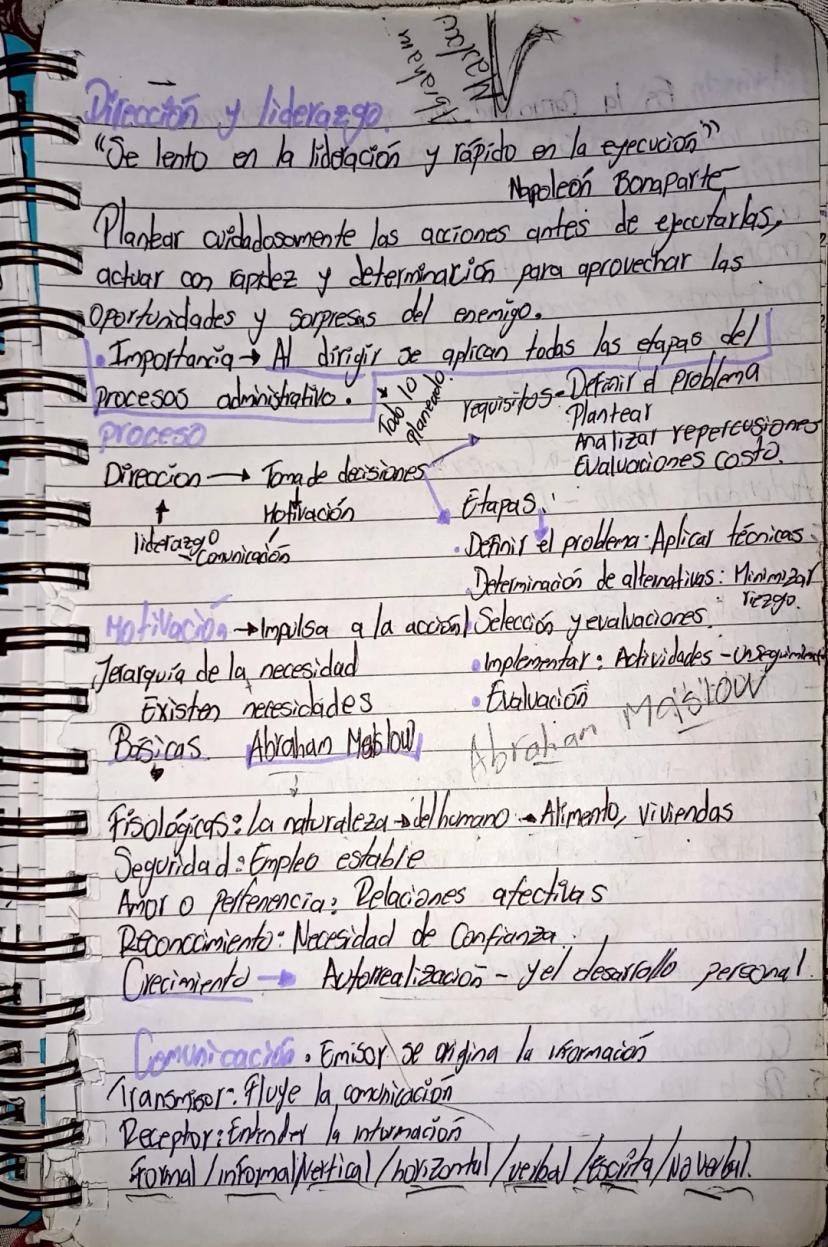 Abraham
Maslow
Dirección y liderazgo.
"Se lento en la lideración y rápido en la ejecución"
Napoleón Bonaparte
Plantear cuidadosamente las acciones antes de ejecutarlas,
actuar con rapidez y determinación para aprovechar las
oportunidades y sorpresas del enemigo.
• Importancia → Al dirigir se aplican todas las etapas del
procesos administrativo.
* Todo lo
planeado.
proceso
Direccion → Toma de decisiones
↑ Motivación
liderazgo
Comunicación
requisitos - Definir el problema
Plantear
Analizar repercusiones
Evaluaciones costo.
Etapas
• Definir el problema: Aplicar técnicas.
Determinación de alternativas: Minimizar
riezgo.
Selección y evaluaciones.
• Implementar: Actividades - un seguimiento
• Evaluación
Motivación → Impulsa a la acción
Jerarquía de la necesidad
Existen necesidades
Básicas Abraham Maslow
Abrahan Maslow
Fisológicas: La naturaleza → del humano → Alimento, viviendas
Seguridad: Empleo estable
Amor o pertenencia: Relaciones afectivas
Reconocimiento: Necesidad de Confianza.
Crecimiento → Autorrealización - y el desarrollo personal.
Comunicación. Emisor se origina la información
Transmisor: Fluye la comunicación
Receptor: Entender la información
formal / informal / vertical / horizontal / verbal / Escrita / No verbal.